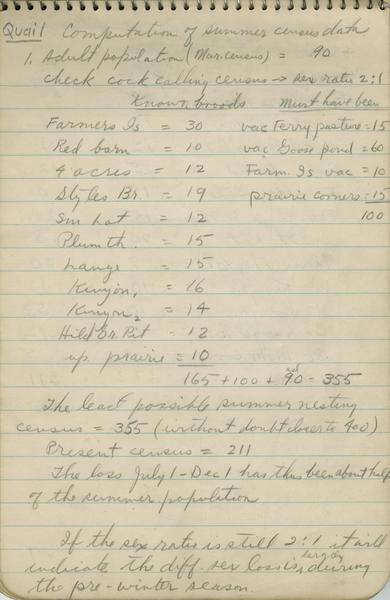 Quail Computation of summer census data
1. Adult population (Mar. census) = 90
check cock calling census → sex ratio 2:1
Known broods Must have been
Farmers Is = 30 vac Ferry pasture = 15
Red barn = 10 vac Goose pond = 60
4 acres = 12 Farm. Is vac = 10
Styles Br. = 19 prairie corners = 15
Sm hat = 12 100
Plum th. = 15
Lange = 15
Kenyon, = 16
Kenyon2 = 14
Hild Br. Pit - 12
up prairie = 10
165 + 100 + 90 = 355
The least possible summer nesting
census = 355 (without doubt closer to 400)
Present census = 211
The loss July 1 - Dec 1 has thus been about half
of the summer population
If the sex ratio is still 2:1 it will
indicate the diff. sex loss is largely during
the pre-winter season.